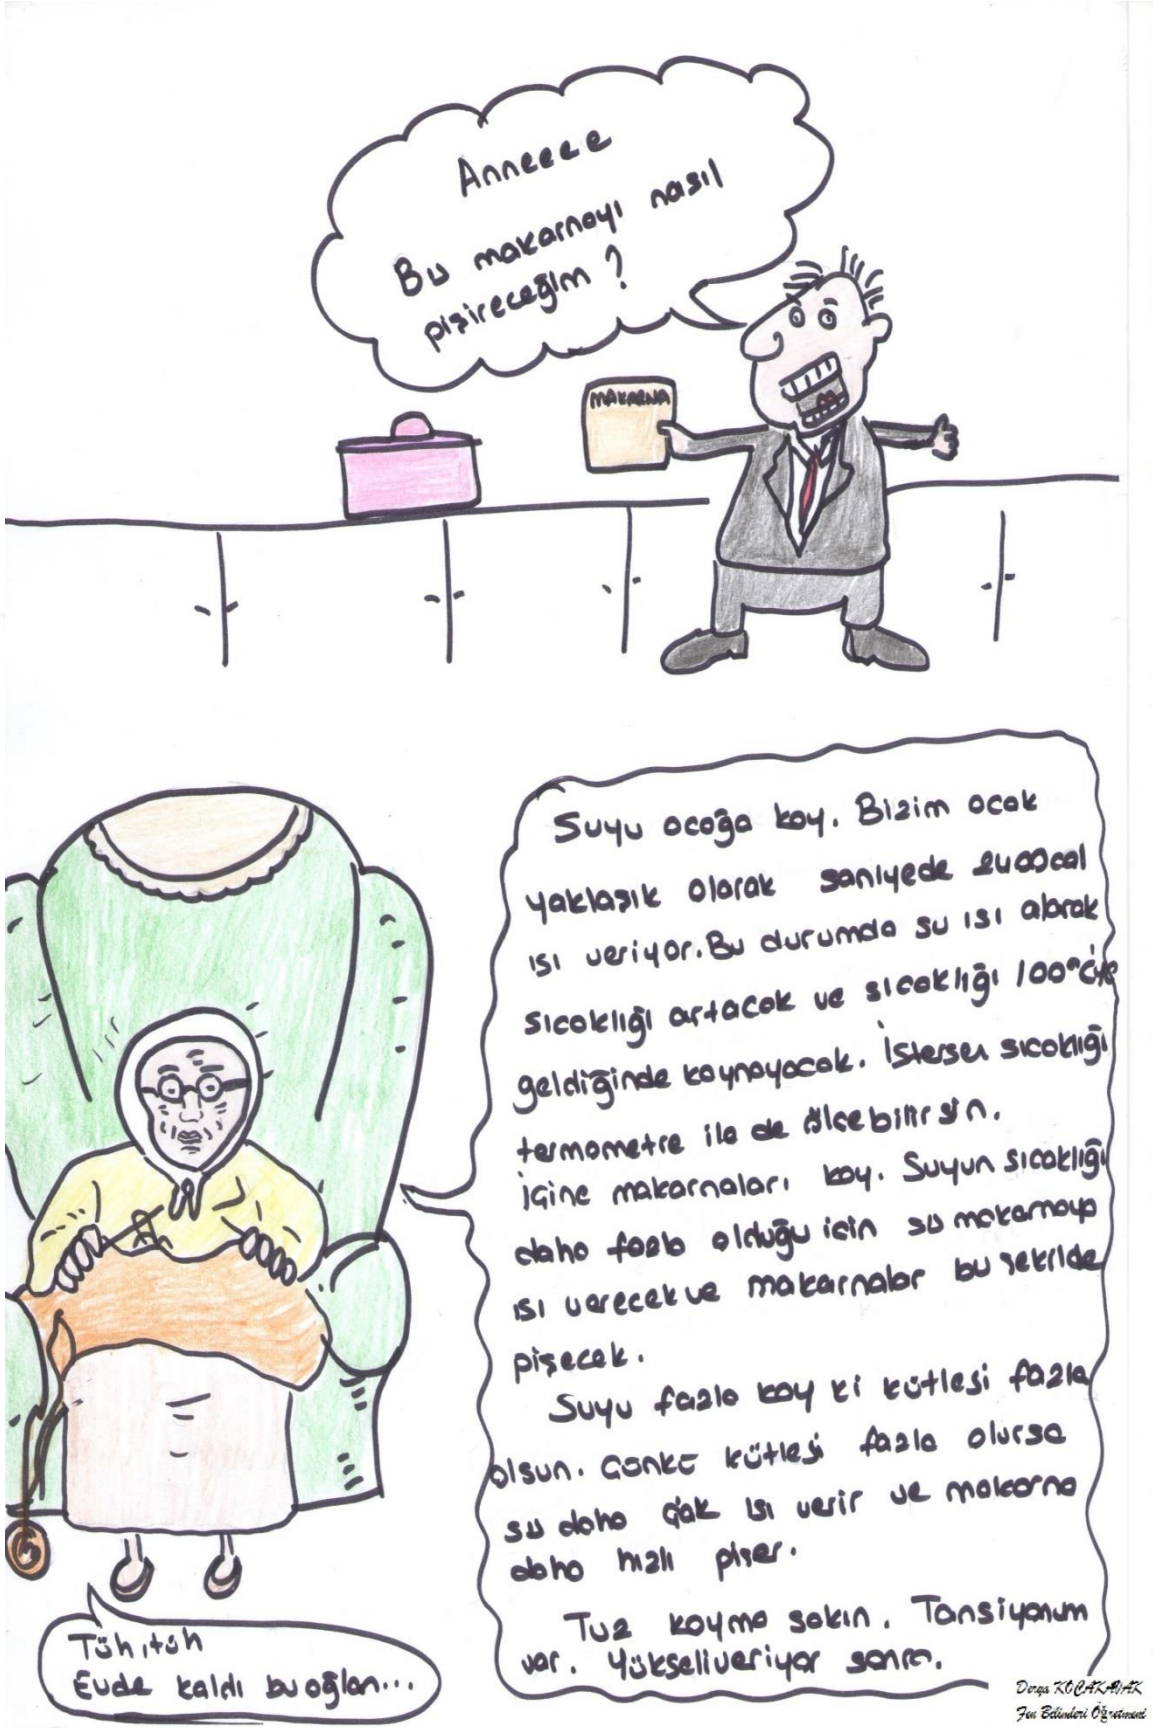 Anneeee
Bu makarnayı nasıl
pişireceğim ?
MAKARNA
Suyu ocağa koy. Bizim ocak
yaklaşık olarak saniyede 2400cal
ısı veriyor. Bu durumda su ısı alarak
sıcaklığı artacak ve sıcaklığı 100°C'ye
geldiğinde kaynayacak. İstersen sıcaklığı
termometre ile de ölçebilirsin.
İçine makarnaları koy. Suyun sıcaklığı
daha fazla olduğu için su makarnaya
ısı verecek ve makarnalar bu şekilde
pişecek.
Suyu fazla koy ki kütlesi fazla
olsun. Çünkü kütlesi fazla olursa
su daha çok ısı verir ve makarna
daha hızlı pişer.
Tuz koyma sakın. Tansiyonum
var. Yükseliveriyor sonra.
Tüh, tüh
Evde kaldı bu oğlan...
Derya KOÇAKAVAK
Fen Bilimleri Öğretmeni